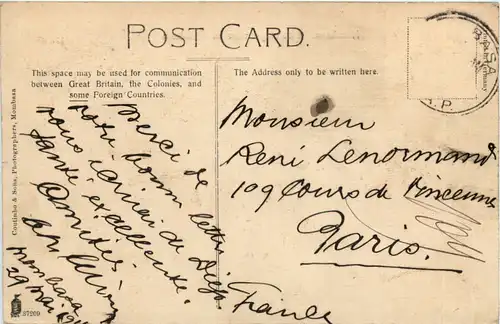 POST CARD.
This space may be used for communication
between Great Britain, the Colonies, and
some Foreign Countries.
The Address only to be written here.
Coutinho & Sons, Photographers, Mombasa
Merci de
votre bonne lettre
santé excellente.
Amitiés.
Mombasa
29 mai
37209
Monsieur
René Lenormand
109 Cours de Vincennes
Paris.
France